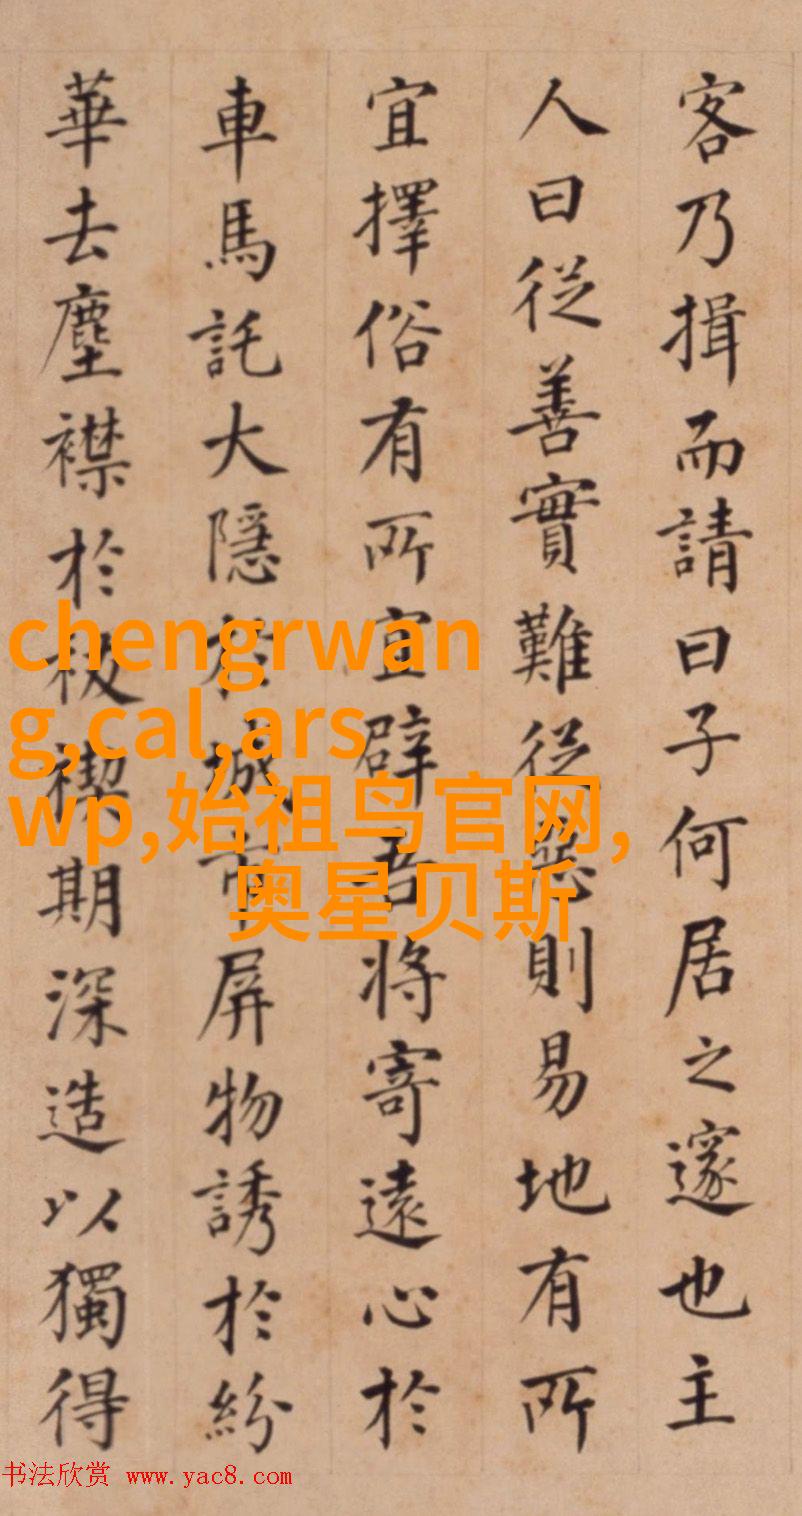 客乃揖而請曰子何居之邃也主
人曰從善實難從惡則易地有所
宜擇俗有所宜辟吾將寄遠心於
車馬託大隱於城市屏物誘於紛
華去塵襟於祓禊期深造以獨得
chengrwan
g,cal,ars
wp,始祖鸟官网,
奥星贝斯
书法欣赏 www.yac8.com